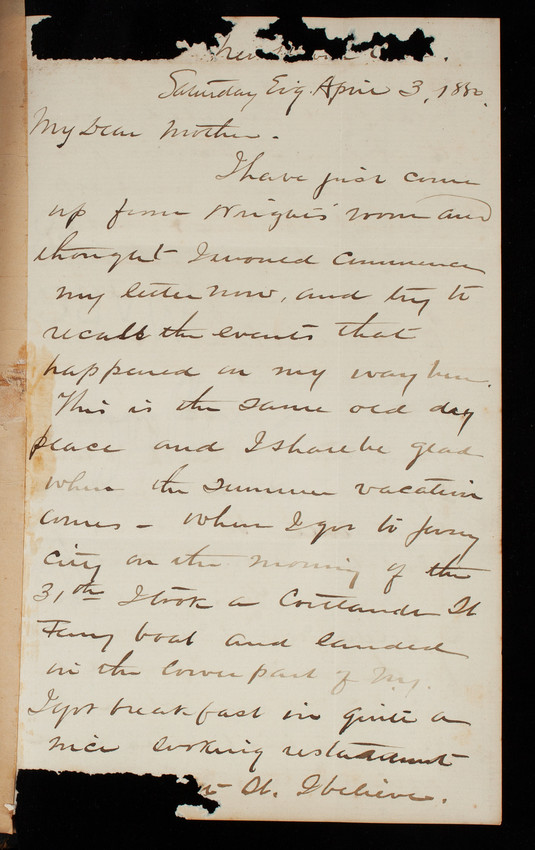 Saturday Evg. April 3, 1880.
My Dear Mother.
I have just come
up from Wrights' room and
thought I would commence
my letter now, and try to
recall the events that
happened on my way here.
This is the same old dry
place and I shall be glad
when the summer vacation
comes - When I got to Jersey
City on the morning of the
31st I took a Cortlandt St
Ferry boat and landed
in the lower part of N.Y.
I got breakfast in quite a
nice looking restaurant
St. I believe.